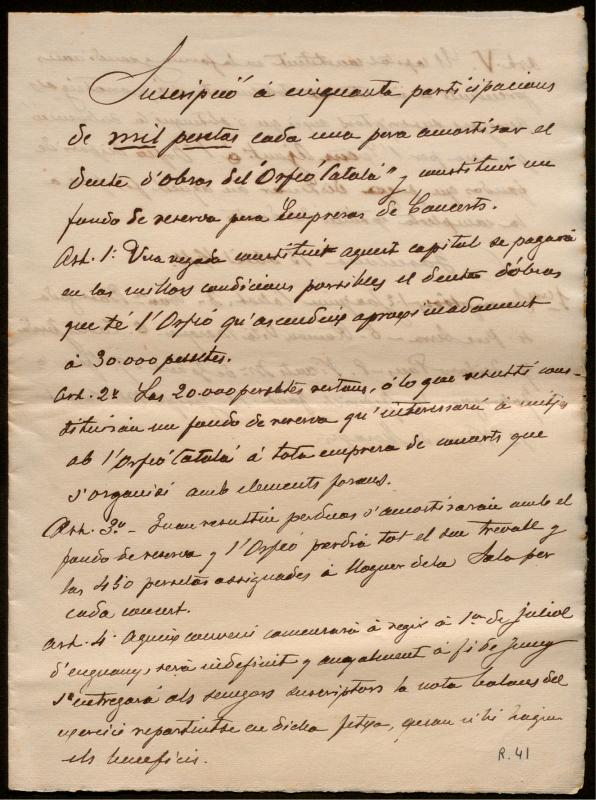 Suscripció á cinquanta participacions
de mil pesetas cada una pera amortisar el
deute d'obras del "Orfeó Catalá" y constituir un
fondo de reserva pera Empresas de Concerts.
Art. 1º Una vegada constituit aquest capital se pagará
en las millors condicions possibles el deute d'obras
que té l'Orfeó qu'ascendeix aproximadament
á 30.000 pessetes.
Art. 2º Las 20.000 pessetes restans, ó lo que resulti cons-
tituirán un fondo de reserva qu'interessará á mitjas
ab l'Orfeó Catalá á tota empresa de concerts que
s'organisi amb elements forans.
Art. 3º – Quan resultin perduas s'amortisarán amb el
fondo de reserva y l'Orfeó perdrá tot el seu treball y
las 450 pessetas assignades á lloguer de la Sala per
cada concert.
Art. 4º Aqueix conveni comensará á regir á 1er de Juliol
d'enguany, será indefinit y anyalment á fi de Juny
s'entregará als senyors suscriptors la nota balans del
exercici repartintse en dicha fetxa, quan n'hi hagin
els beneficis.
R. 41